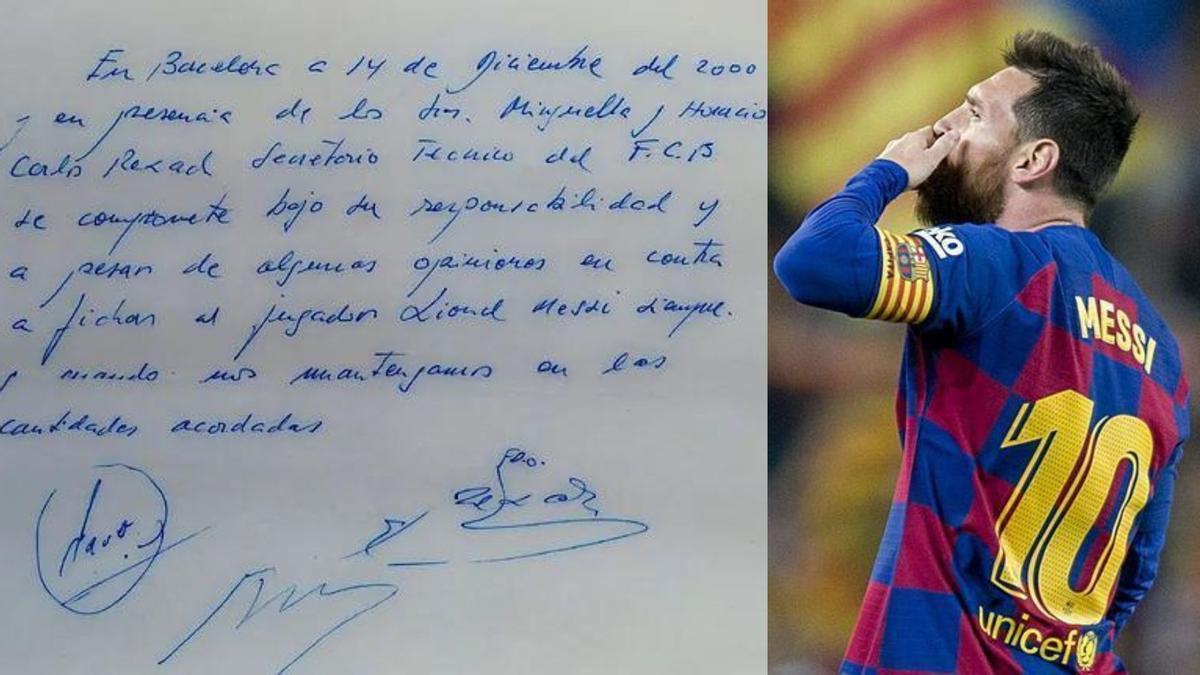 En Barcelona a 14 de Diciembre del 2000
y en presencia de los Srs. Minguella y Horacio
Carlos Rexach Secretario Técnico del F.C.B
se compromete bajo su responsabilidad y
a pesar de algunas opiniones en contra
a fichar al jugador Lionel Messi siempre.
y cuando nos mantengamos en las
cantidades acordadas
Fdo.
beko
MESSI
10
unicef